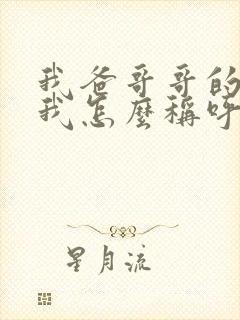 我爸哥哥的
我怎麼稱呼
星月流